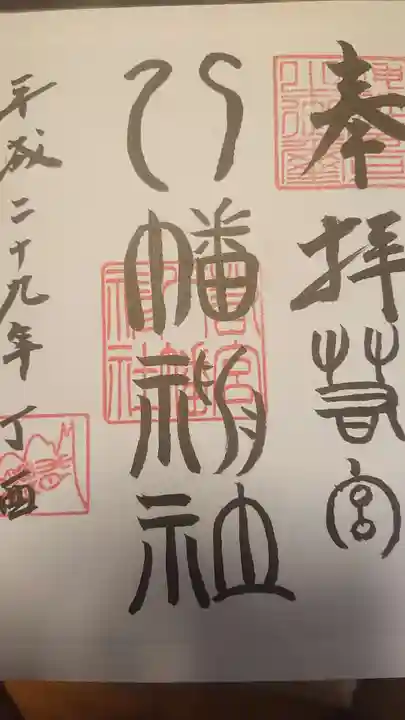 奉拝 若宮
八幡神社
平成二十九年 丁酉